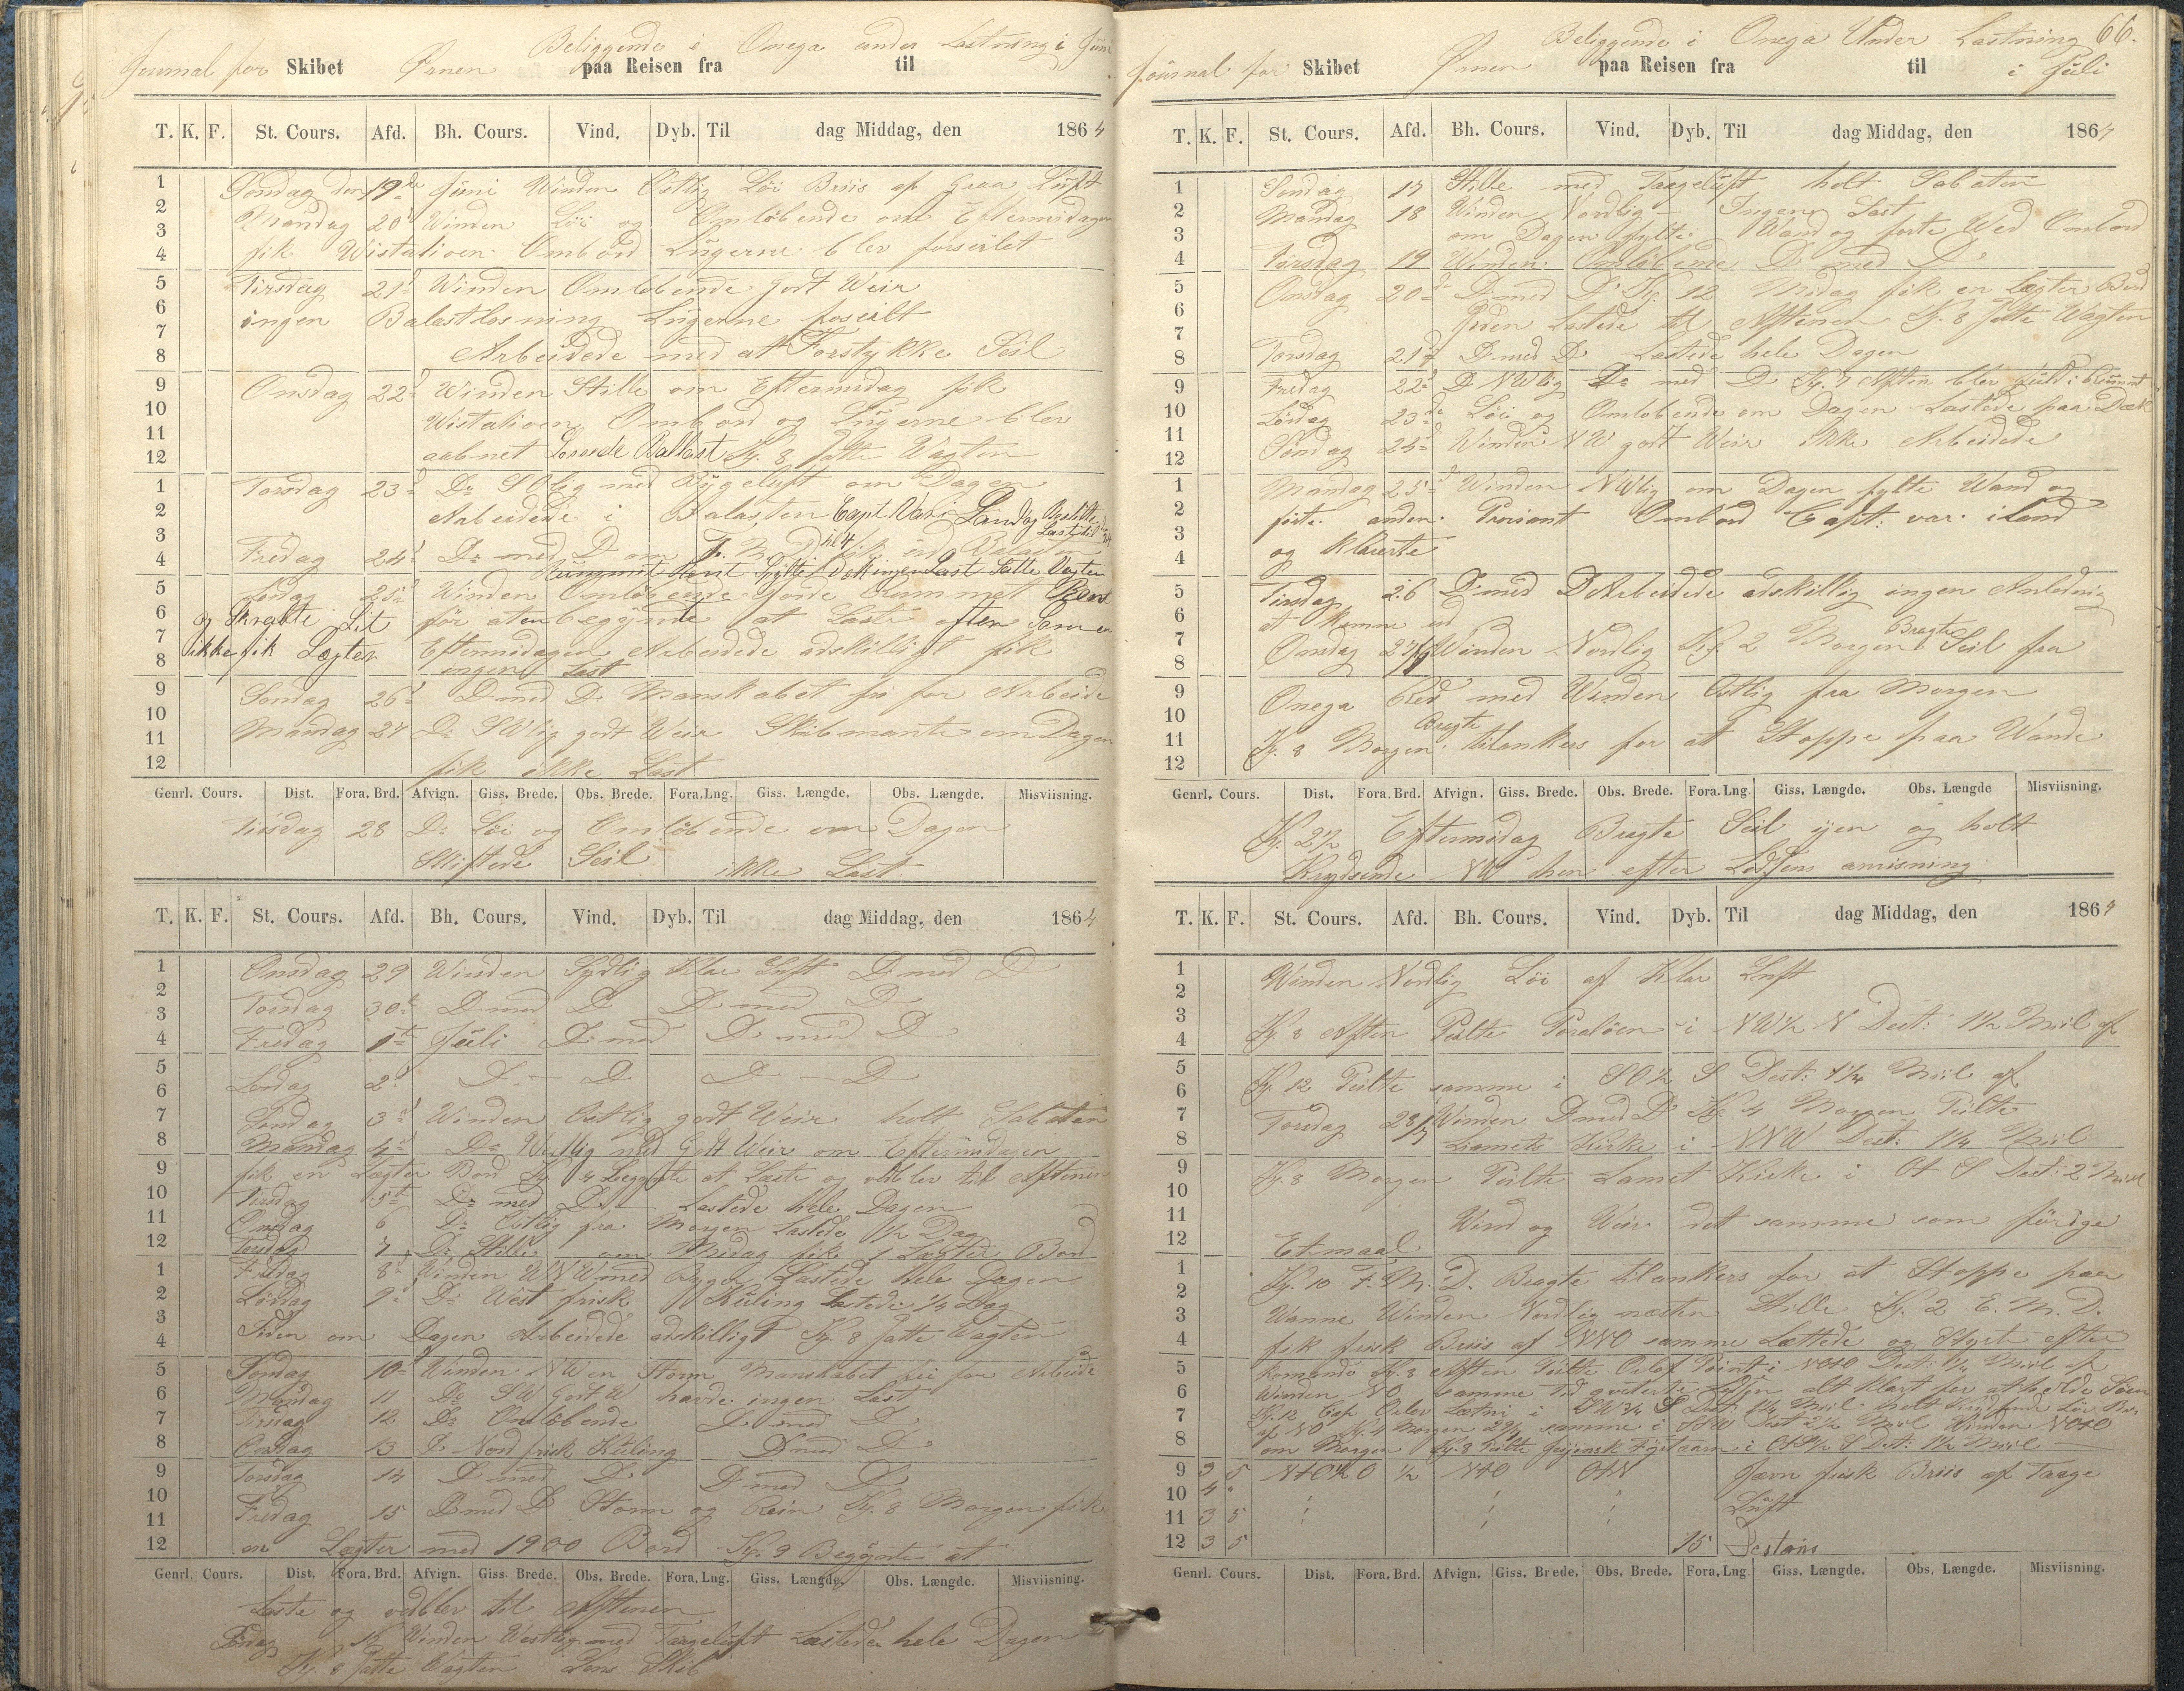 Beliggende i Onega under Lastning i Juni
Journal for Skibet Ørnen paa Reisen fra til
T. K. F. St. Cours. Afd. Bh. Cours. Vind. Dyb. Til dag Middag, den 1864
1 Søndag den 19de Juni Winden Østlig Løi Briis af graa Luft
2 Mandag 20d Winden Løi og Omløbende om Eftermidagen
3
4 fik Wistatioen Ombord Lugerne blev forseilet
5 Tirsdag 21d Winden Omløbende godt Weir
6 ingen Balastlosning Lugerne forseilt
7
8 Arbeidede med at Forstykke Seil
9 Onsdag 22d Winden Stille om Eftermidag fik
10 Wistatioen Ombord og Lugerne blev
11
12 aabnet Lossede Ballast Kl. 8 satte Wagten
1 Torsdag 23d Do SOlig med Bygeluft om Dagen
2 Arbeidede i Balasten Capt Var i Land og Bestilte
3 Last til
4 Fredag 24d Do med D om fik ud Balasten
Rummet Rent Last Satte Vagten
5 Lørdag 25d Winden Omløbende gjorde Rummet Rent
6 og Skrabte Lit før aten begynte at Laste efter Som en
7 ikke fik Lægter Eftermidagen Arbeidede adskilligt fik
8 ingen Last
9 Søndag 26d D med D Manskabet fri for Arbeide
10
11 Mandag 27 Do SWlig godt Weir Skibmante om Dagen
12 fik ikke Last
Genrl. Cours. Dist. Fora. Brd. Afvign. Giss. Brede. Obs. Brede. Fora. Lng. Giss. Længde. Obs. Længde. Misviisning.
Tirsdag 28 Do Løi og Omløbende om Dagen
Skiftede Seil ikke Last
T. K. F. St. Cours. Afd. Bh. Cours. Vind. Dyb. Til dag Middag, den 1864
1 Onsdag 29 Winden Sydlig Klar Luft D med D
2
3 Torsdag 30t D med D D med D
4 Fredag 1t Juli D med D med D
5
6 Lørdag 2d D — D D — D
7 Søndag 3d Winden Østlig godt Weir holt Sabaten
8 Mandag 4d Do Westlig med Godt Weir om Eftermidagen
9 fik en Lægter Bord Kl. 4 Begynte at Laste og vedblev til Aftenen
10 Tirsdag 5t Do med D Lastede hele Dagen
11 Onsdag 6 Do Østlig fra Morgen Lastede 1/2 Dag
12 Torsdag 7 Do Stille om Midag fik 1 Lægter Bord
1 Fredag 8d Winden WNW med Byger Lastede hele Dagen
2 Lørdag 9d Do West frisk Kuling Lastede 1/4 Dag
3
4 Siden om Dagen Arbeidede adskilligt Kl. 8 satte Vagten
5 Søndag 10d Winden NW en Storm Manskabet fri for Arbeide
6 Mandag 11 Do SW godt W havde ingen Last
7 Tirsdag 12 Do Omløbende D med D
8 Onsdag 13 D Nord frisk Kuling D med D
9 Torsdag 14 D med D D med D
10 Fredag 15 D med D Storm og Rein Kl. 8 Morgen fik
11
12 en Lægter med 1900 Bord Kl. 9 Begynte at
Genrl. Cours. Dist. Fora. Brd. Afvign. Giss. Brede. Obs. Brede. Fora. Lng. Giss. Længde. Obs. Længde. Misviisning.
Laste og vedblev til Aftenen
16 Winden Westlig med Taageluft Lastede hele Dagen
Kl. 8 satte Wagten Lens Skib
Beliggende i Onega Under Lastning 66.
Journal for Skibet Ørnen paa Reisen fra til i Juli
T. K. F. St. Cours. Afd. Bh. Cours. Vind. Dyb. Til dag Middag, den 1864
1 Søndag 17 Stille med Taageluft holt Sabaten
2 Mandag 18 Winden Nordlig — Ingen Last
3 om Dagen fylte Wand og førte Wed Ombord
4 Tirsdag 19 Winden Omløbende D med D
5 Onsdag 20d D med D Kl. 12 Midag fik en Lægter Bord
6 Siden Lastede til Aftenen Kl. 8 satte Wagten
7
8 Torsdag 21d D med D Lastede hele Dagen
9 Fredag 22d D NWlig Do med D Kl. 7 Aften blev fuld i Rummet
10 Lørdag 23de Løi og Omløbende om Dagen Lastede paa Dæk
11
12 Søndag 24d Winden NW godt Weir ikke Arbeidede
1 Mandag 25d Winden NWlig om Dagen fylte Wand og
2 førte anden Proviant Ombord Capt. var iland
3
4 og klarerte
5 Tirsdag 26 D med D Arbeidede adskillig ingen Anledning
6 at komme ud
7 Onsdag 27/7 Winden Nordlig Kl. 2 Morgen Bragte Seil fra
8
9 Onega Red med Winden Østlig fra Morgen
10
11 Kl. 8 Morgen Bragte tilankers for at Stoppe paa Wande
12
Genrl. Cours. Dist. Fora. Brd. Afvign. Giss. Brede. Obs. Brede. Fora. Lng. Giss. Længde. Obs. Længde Misviisning.
Kl. 2 1/2 Eftermidag Bragte Seil ijen og holt
Krydsende NW hen efter Lodsens anvisning
T. K. F. St. Cours. Afd. Bh. Cours. Vind. Dyb. Til dag Middag, den 1864
1 Winden Nordlig Løi af Klar Luft
2
3
4 Kl. 8 Aften Peilte i NW 1/2 N Dist: 1 1/2 Miil af
5
6 Kl. 12 Peilte samme i SO 1/2 S Dist: 1 1/4 Miil af
7 Torsdag 28/7 Winden D med D Kl. 4 Morgen Peilte
8 Kirke i NNW Dist: 1 1/4 Miil
9 Kl. 8 Morgen Peilte Lamet Kirke i OtS Dist: 2 Miil
10
11 Wind og Weir det samme som förige
12 Etmaal
1 Kl. 10 F. M. D. Bragte tilankers for at Stoppe paa
2
3 Wanne Winden Nordlig næsten Stille Kl. 2 E. M. D.
4 fik frisk Briis af NNO samme Lættede og Styrte efter
5 Komando Kl. 8 Aften Peilte Orlof Point i NOtO Dist: 1 1/4 Miil af
6 Winden NO samme Tid alt klart for at holde Søen
7 Kl. 12 Cap Orlov
8 om Morgen Kl. 8 Peilte
9 3 5 NtO 1/2 O 1/2 NtO OtN Jævn frisk Briis af Taage
10 4 " Luft
11 3 5
12 3 5 15 Destans
Genrl. Cours. Dist. Fora. Brd. Afvign. Giss. Brede. Obs. Brede. Fora. Lng. Giss. Længde. Obs. Længde. Misviisning.